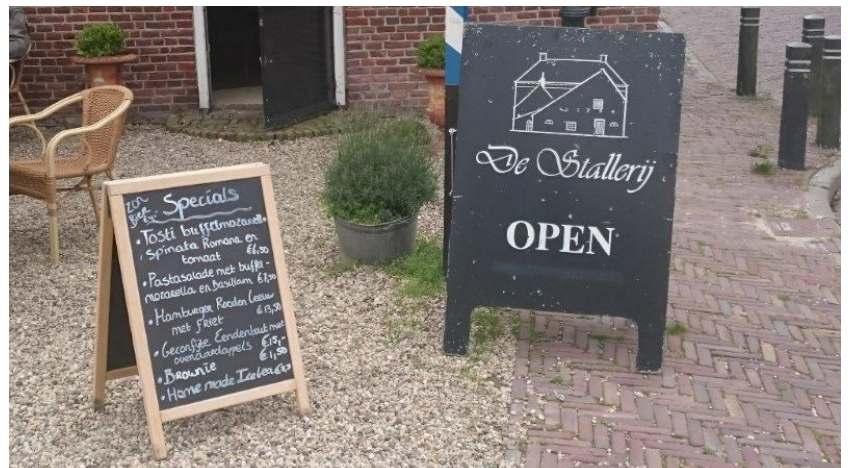 Specials
• Tosti buffelmozarella
Spinata Romana en
tomaat €6,50
• Pastasalade met buffel-
mozarella en Basilicum €7,50
• Hamburger Rooden Leeuw
met friet €13,50
• Geconfijte Eendenbout met
ovenaardappels €15,-
• Brownie €1,50
• Home made Icetea
De Stallerij
OPEN